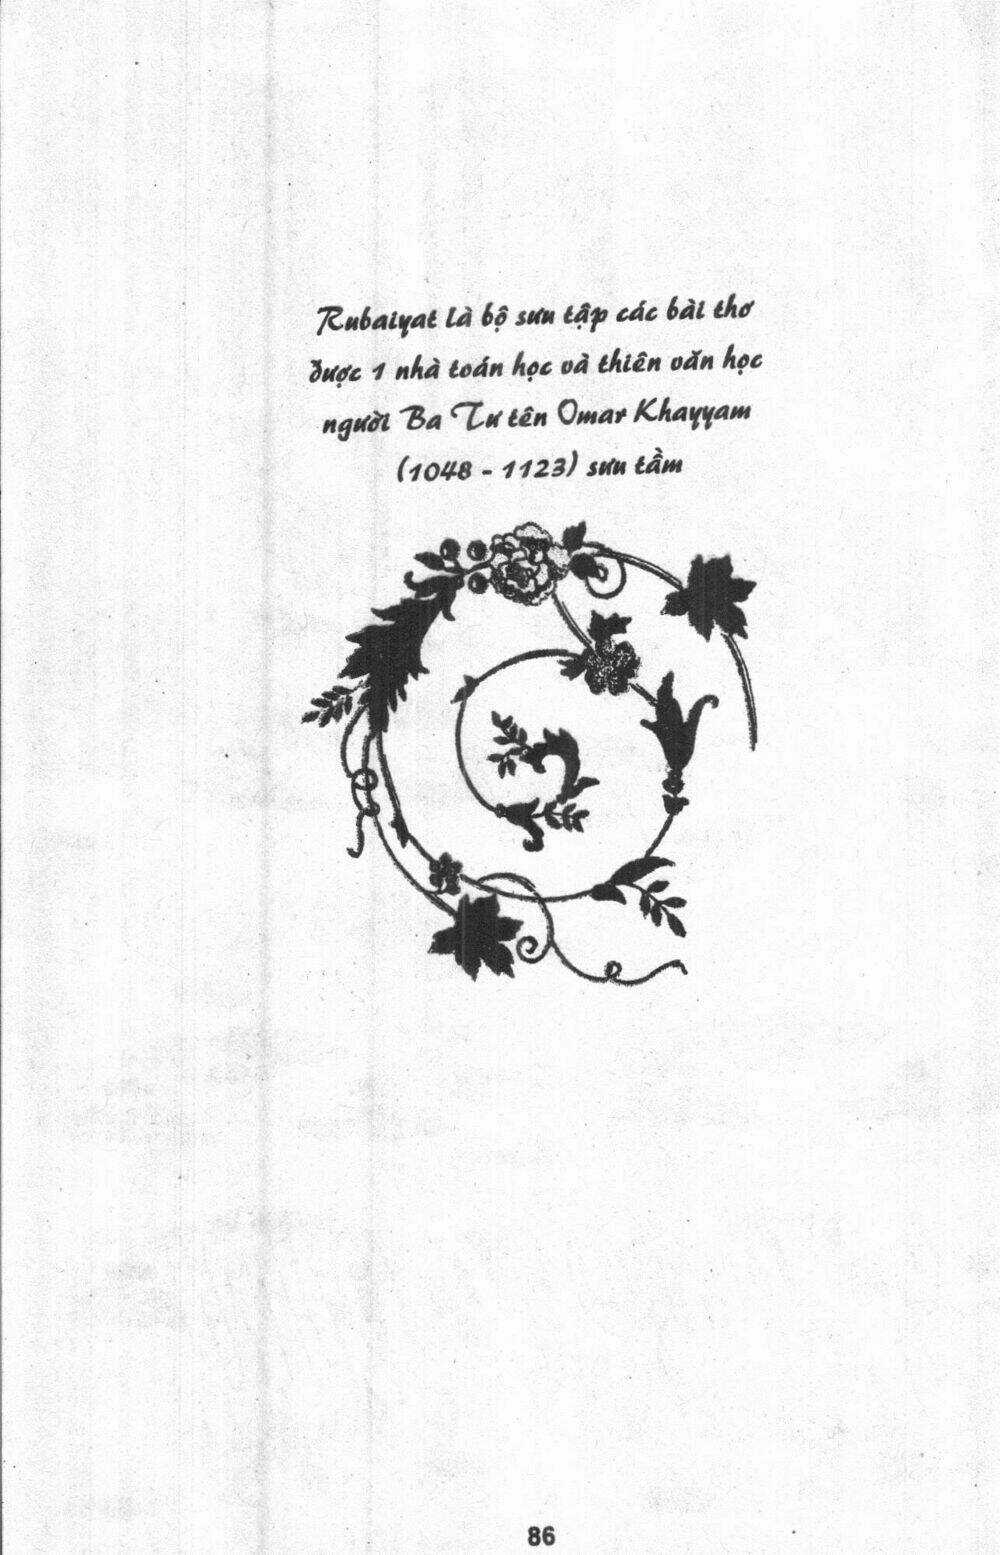 Rubaiyat là bộ sưu tập các bài thơ
được 1 nhà toán học và thiên văn học
người Ba Tư tên Omar Khayyam
(1048 - 1123) sưu tầm
86